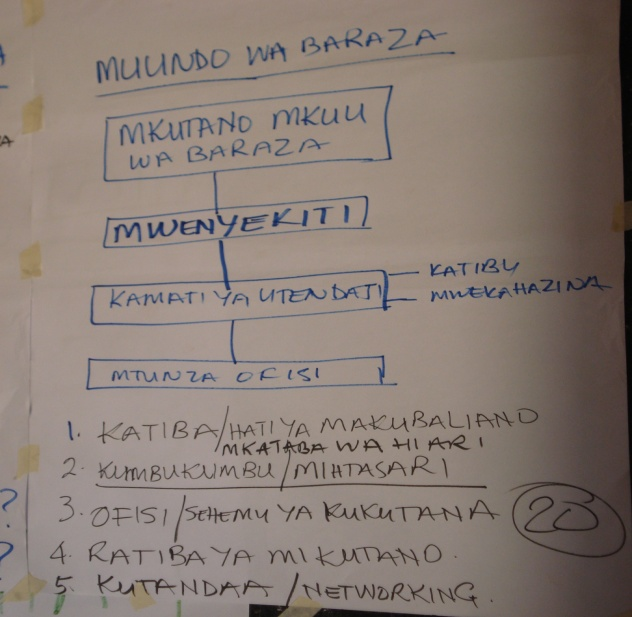 MUUNDO WA BARAZA
MKUTANO MKUU
WA BARAZA
MWENYEKITI
KAMATI YA UTENDAJI
KATIBU
MWEKAHAZINA
MTUNZA OFISI
1. KATIBA/HATI YA MAKUBALIANO
MKATABA WA HIARI
2. KUMBUKUMBU/MIHTASARI
3. OFISI/SEHEMU YA KUKUTANA
20
4. RATIBA YA MIKUTANO.
5. KUTANDAA/NETWORKING.
?
?